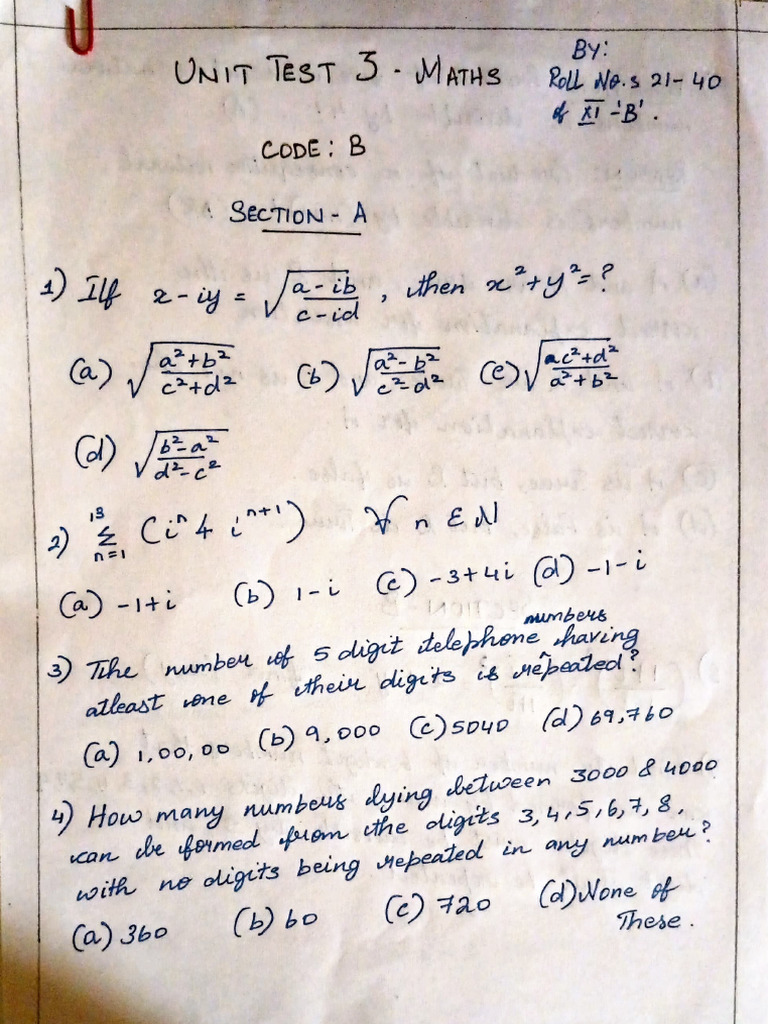 UNIT TEST 3 - MATHS
BY:
Roll No.s 21-40
of XI -'B'.
CODE: B
SECTION - A
1) If x - iy = √(a - ib / c - id), then x² + y² = ?
(a) √(a² + b² / c² + d²) (b) √(a² - b² / c² - d²) (c) √(ac² + d² / a² + b²)
(d) √(b² - a² / d² - c²)
2) 13 Σ n=1 (iⁿ + iⁿ⁺¹) ∀ n ∈ N
(a) -1+i (b) 1-i (c) -3+4i (d) -1-i
numbers
3) The number of 5 digit telephone ^ having
atleast one of their digits is repeated?
(a) 1,00,00 (b) 9,000 (c) 5040 (d) 69,760
4) How many numbers lying between 3000 & 4000
can be formed from the digits 3,4,5,6,7,8,
with no digits being repeated in any number?
(a) 360 (b) 60 (c) 720 (d) None of
These.